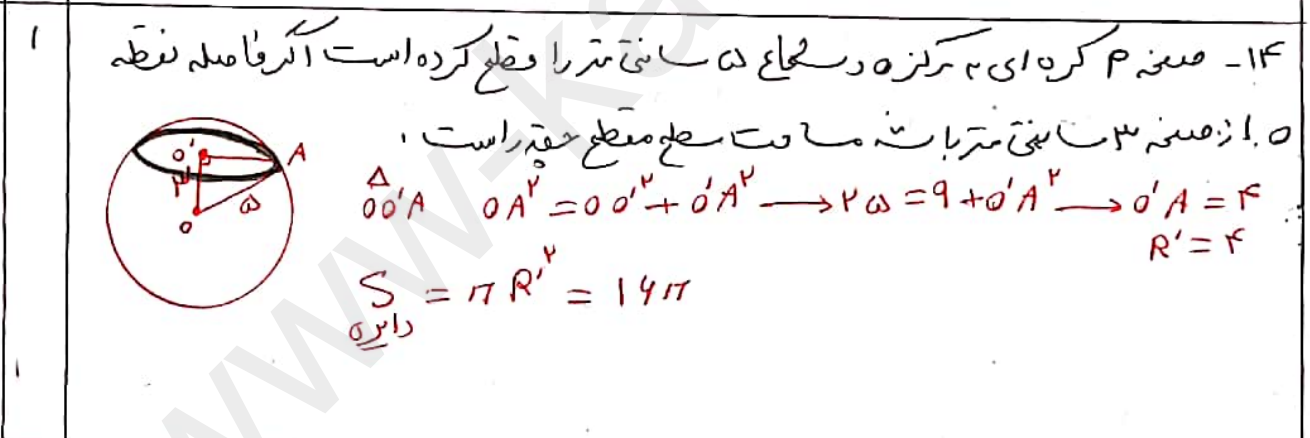 ۱
۱۴- صفحه P کره ای به مرکز o و شعاع ۵ سانتی متر را قطع کرده است اگر فاصله نقطه
o از صفحه ۳ سانتی متر باشد مساحت سطح مقطع چقدر است.
o' A
۳ ۵
o
△
oo'A oA^۲ = oo'^۲ + o'A^۲ → ۲۵ = ۹ + o'A^۲ → o'A = ۴
R' = ۴
S = π R'^۲ = ۱۶π
دایره